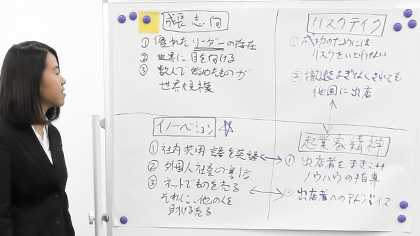 成長志向
① 優れたリーダーの存在
② 世界に目を向ける
③ 数人で始めたものが
世界規模
リスクテイク
① 成功のためには
リスクもいとわない
② 撤退をよぎなくされても
他国に出店
イノベーション
① 社内共用語を英語
② 外国人社員の割合
③ ネットでものを売る
それに、他の人を
助ける売る
起業家精神
① 出店者をまきこみ
ノウハウの指導
② 出店者へのアドバイス